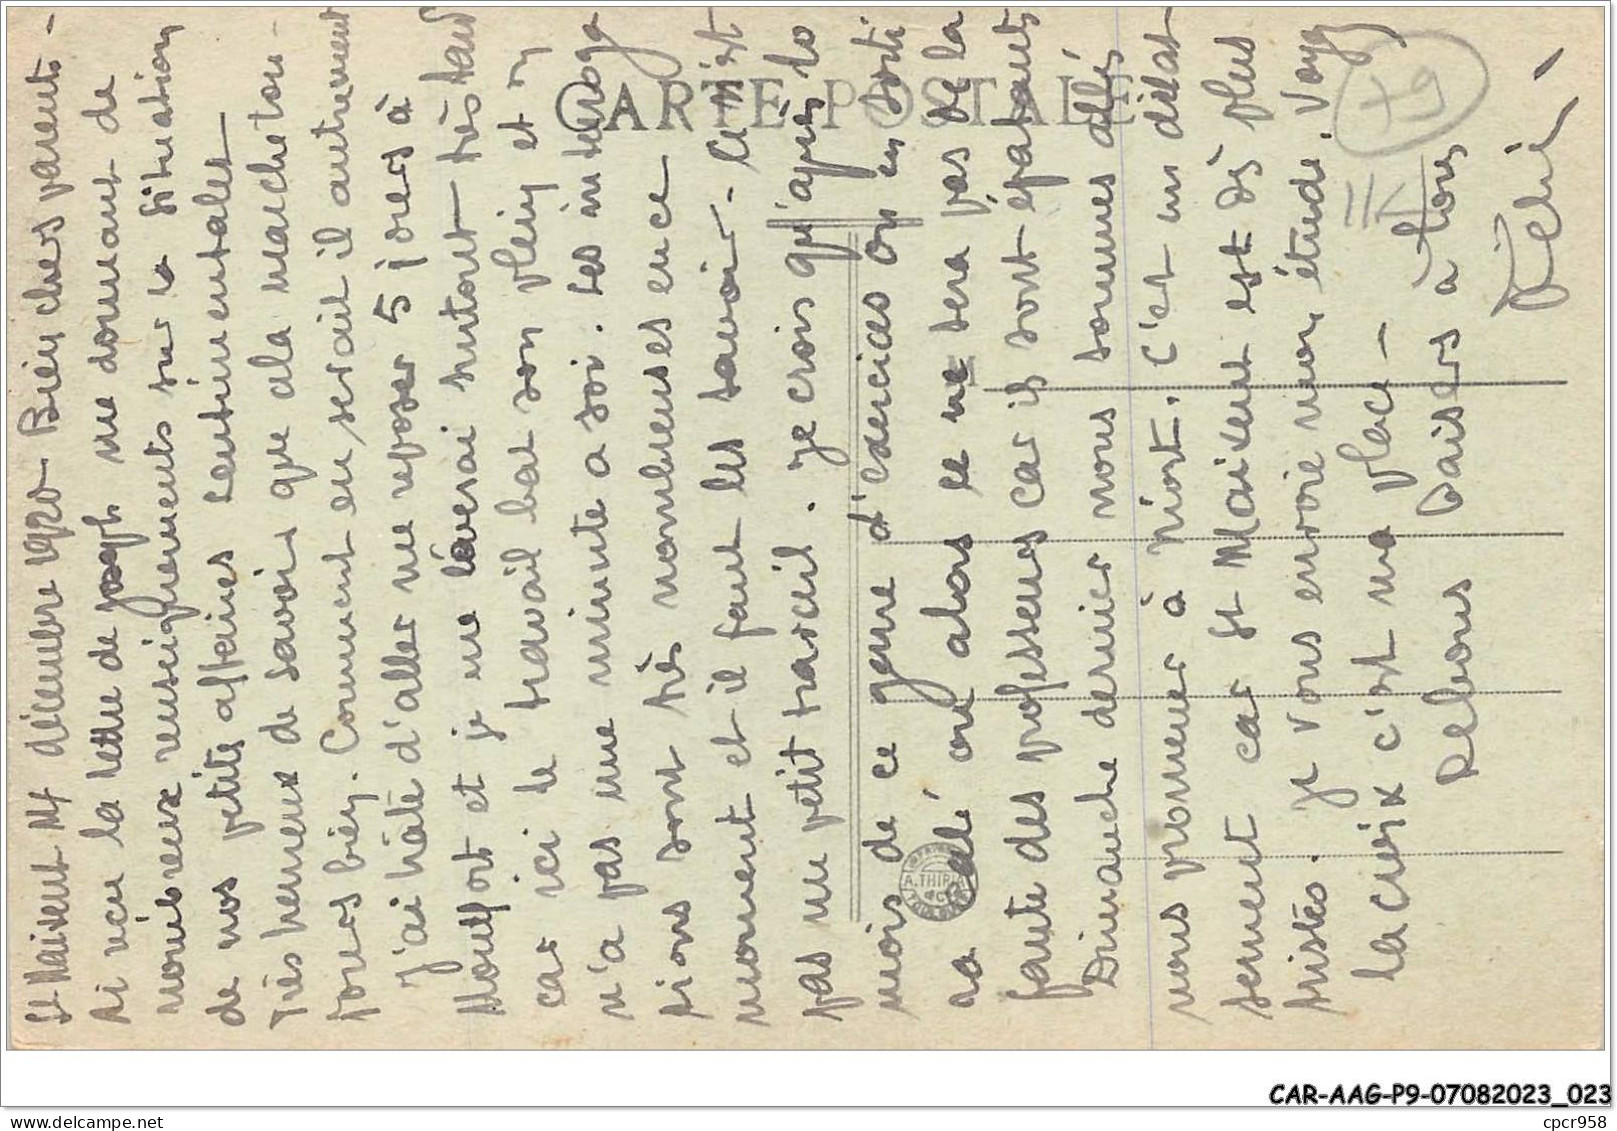 St Maixent 14 décembre 1920 - Bien chers parents -
ai reçu la lettre de Joseph me donnant de
nombreux renseignements sur la situation
de vos petites affaires sentimentales
Très heureux de savoir que ala marche tou-
jours bien. Comment en serait il autrement
J'ai hâte d'aller me reposer 5 jours à
et je me lèverai surtout très tard
car ici le travail bat son plein et on
n'a pas une minute a soi. Les interroga
tions sont très nombreuses en ce
moment et il faut les savoir - Ce n'est
pas un petit travail. Je crois qu'après 10
mois de ce genre d'exercices on en sorti
ra calé ou alors ce ne sera pas de la
faute des professeurs car ils sont épatants
Dimanche dernier nous sommes allés
nous promener à Niort. C'est un délas-
sement car St Maixent est des plus
tristes. Je vous envoie mon étude. Voyez
la croix c'est ma place -
Rebons baisers à tous
Félix
CARTE POSTALE
79
A. THIRIA
CAR-AAG-P9-07082023_023
Delcampe.net
cpcr958